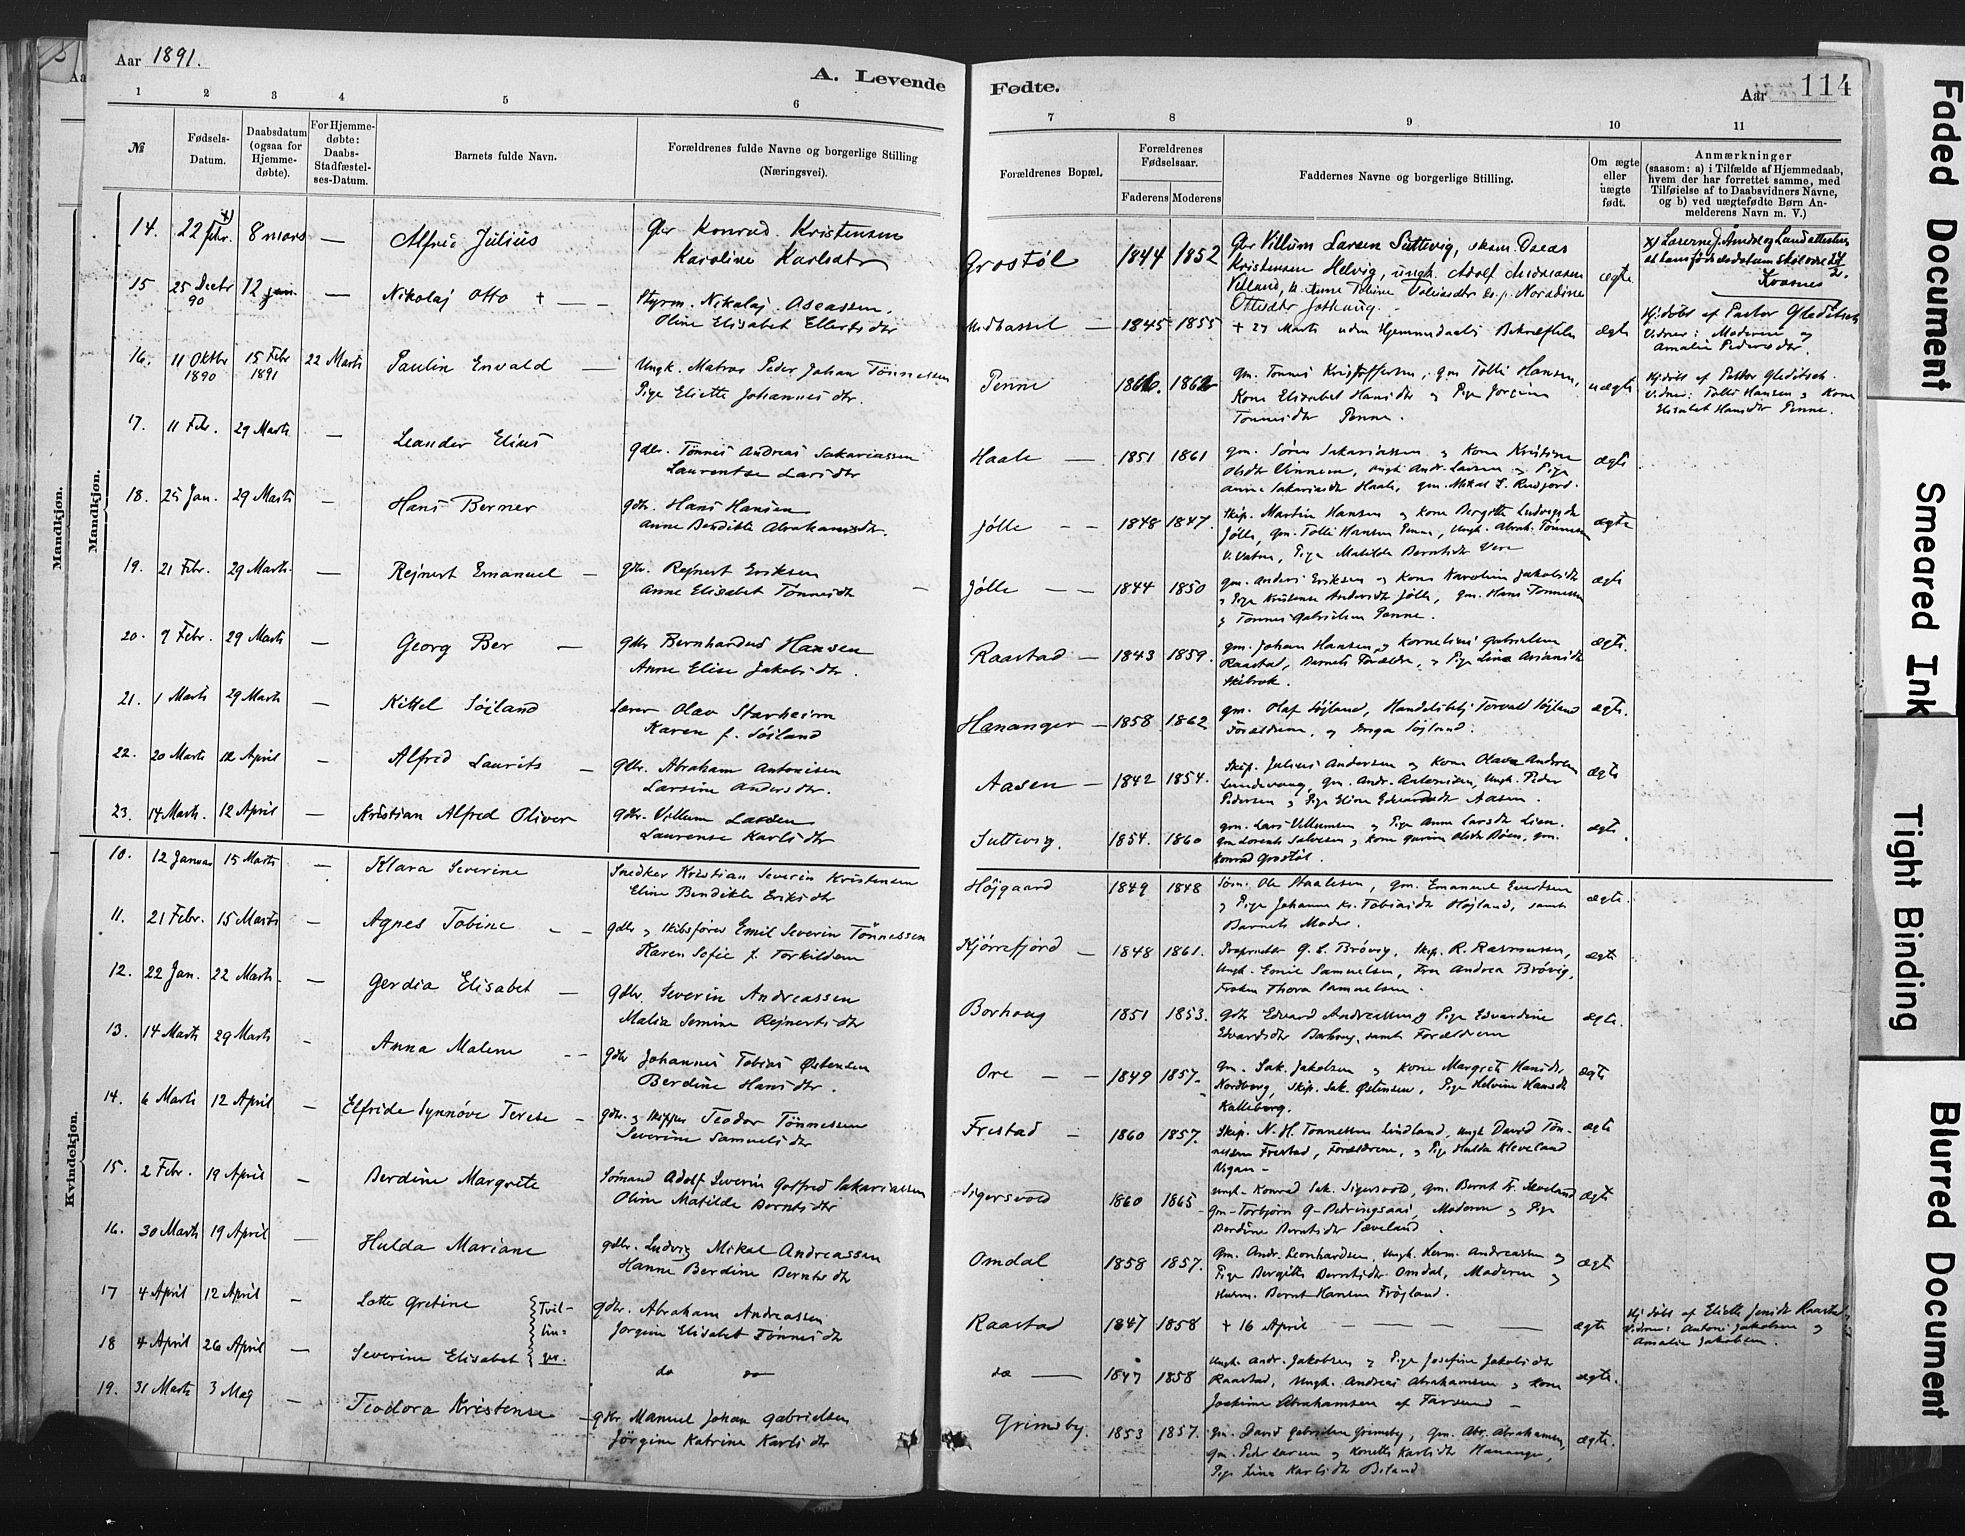 Aar 1891.
A. Levende Fødte.
Aar 114
1 2 3 4 5 6 7 8 9 10 11
№
Fødsels-
Datum.
Daabsdatum
(ogsaa for
Hjemme-
døbte).
For Hjemme-
døbte:
Daabs-
Stadfæstel-
ses-Datum.
Barnets fulde Navn.
Forældrenes fulde Navne og borgerlige Stilling
(Næringsvei).
Forældrenes Bopæl.
Forældrenes
Fødselsaar.
Faderens Moderens
Faddernes Navne og borgerlige Stilling.
Om ægte
eller
uægte
født.
Anmærkninger
(saasom: a) i Tilfælde af Hjemmedaab,
hvem der har forrettet samme, med
Tilføielse af to Daabsvidners Navne,
og b) ved uægtefødte Børn An-
melderens Navn m. V.)
Mandkjøn.
Mandkjøn.
14. 22 Febr. 8 mars — Alfred Julius Gbr Konrad Kristensen
Karoline Karlsdtr
Grostøl 1844 1852 Gbr Villum Larsen Suttevig,
Kristensen Helvig, ungk. Adolf Andreassen
ægte
15 25 Decbr 90 12 jan — Nikolaj Otto + — Styrm. Nikolaj Oseassen.
Oline Elisabet Ellertsdtr
Midbassel — 1845 1855 + 27 Marts uden Hjemmedaabs Bekræftelse ægte
Hj.døbt af Pastor Gleditsch
Vidner: Moderen og
Amalie Pedersdtr.
16. 11 Oktbr 1890 15 Febr 1891 22 Marts Paulin Envald — Ungk. Matros Peder Johan Tønnessen
Pige Eliette Johannesdtr.
Penne 1866. 1862 gm. Tønnes Kristoffersen, gm Tolli Hansen,
Kone Elisabet Hansdtr og Pige Jorgine
Tønnesdtr Penne.
uægte
Hj.døbt af Pastor Gleditsch.
Vidner: Tolli Hansen og Kone
Elisabet Hansdtr Penne.
17. 11 Febr. 29 Marts — Leander Elius gdbr. Tønnes Andreas Sakariassen
Laurentse Larsdtr
Haale — 1851 1861 gm. Søren Sakariassen og Kone Kristine
Olsdtr Vinnem, ungk. Andr. Larsen og Pige
Anne Sakariasdtr Haale, gm. Mikal S. Rudjord.
ægte
18. 25 Jan. 29 Marts — Hans Berner gdbr. Hans Hansen
Anne Bendikte Abrahamsdtr.
Jølle — 1848 1847. Skip. Martin Hansen og Kone Bergitte Ludvigsdtr
Jølle, gm. Tolli Hansen Penne, Ungk. Abrah. Tønnessen
V. Vatne, Pige Matilde Berntsdtr Vere
ægte
19. 21 Febr. 29 Marts. — Rejnert Emanuel — gdbr. Rejnert Eriksen
Anne Elisabet Tønnesdtr
Jølle — 1844 1850 gm. Anders Eriksen og Kone Karoline Jakobsdtr
og Pige Kristense Andersdtr Jølle, gm. Hans Tønnessen
og Tønnes Gabrielsen Penne.
ægte
20. 7 Febr. 29 Marts — Georg Ber — gdbr Bernhardus Hansen
Anne Elise Jakobsdtr.
Raastad — 1843 1859. gm. Johan Hansen, Kornelius Gabrielsen
Raastad, Barnets Forældre, og Pige Lina Asiansdtr
Skibrok.
ægte.
21. 1 Marts 29 Marts — Kittel Söjland Lærer Olav Starheim
Karen f. Söiland
Hananger — 1858 1862 gm. Olaf Söjland, Handelsbetj. Torvald Söjland
Forældrene, og Inga Söjland.
ægte.
22. 20 Marts 12 April — Alfred Laurits — gdbr. Abraham Antonisen
Larsine Andersdtr.
Aasen — 1842 1854. Skip. Julius Andersen og Kone Olava Andrea
Lundevaag, gm. Andr. Antonisen, Ungk. Peder
Pedersen og Pige Eline Edvardsdtr Aasen.
ægte
23. 14 Marts. 12 April — Kristian Alfred Oliver gdbr. Villum Larsen
Laurense Karlsdtr
Suttevig. 1854. 1860 gm. Lars Villumsen og Pige Anne Larsdtr Lien.
gm Lorents Salvesen og Kone Gurine Olsdtr Böen, gm.
Konrad Grostøl.
ægte
Kvindekjøn.
10. 12 Januar 15 Marts — Klara Severine Snedker Kristian Severin Kristensen
Eline Bendikte Eriksdtr
Höjgaard 1849 1848 Søm. Ole Staalesen, gm. Emanuel Evertsen
og Pige Johanne Kr. Tobiasdtr Höjland, samt
Barnets Moder.
ægte.
11. 21 Febr. 15 Marts — Agnes Tobine — gdbr og Skibsfører Emil Severin Tönnessen
Karen Sofie f. Torkildsen
Kjörrefjord — 1848 1861. Proprietær G. C. Brövig, Skip. R. Rasmussen,
Ungk. Emil Samuelsen, Fru Andrea Brövig,
Frøken Thora Samuelsen.
ægte
12. 22 Jan. 22 Marts — Gerdia Elisabet — gdbr. Severin Andreassen
Malia Semine Rejnertsdtr
Borhaug 1851 1853. gdbr Edvard Andreassen og Pige Edvardine
Edvardsdtr Borhaug, samt Forældrene
ægte.
13. 14 Marts 29 Marts — Anna Malene — gdbr Johannes Tobias Østensen
Berdine Hansdtr.
Ore — 1849 1857. gm. Sak. Jakobsen og Kone Margrete Hansdtr
Nordberg, Skip. Sak. Østensen, Pige Helvine Hansdtr
Kalleberg.
ægte
14. 6 Marts 12 April — Elfride Synnöve Terese — gdbr. og Skipper Teodor Tönnessen
Severine Samuelsdtr
Frestad — 1860 1857. Skip. N. H. Tönnessen Lindland, ungk David Tön-
nessen Frestad, Forældrene, og Pige Hulda Kleveland
Vigan —
ægte
15. 2 Febr. 19 April — Berdine Margrete Sømand Adolf Severin Gotfred Sakariassen
Oline Matilde Berntsdtr
Sigersvold 1860 1865 ungk. Konrad Sak. Sigersvold, gm. Bernt
gm. Torbjörn G. Bedringsaas, Moderen og Pige
Berdine Berntsdtr Sæveland.
ægte
16. 30 Marts 19 April — Hulda Mariane gdbr. Ludvig Mikal Andreassen
Hanne Berdine Berntsdtr
Omdal 1858 1857. gm. Andr. Leonhardsen, ungk. Herm. Andreassen og
Pige Bergitte Berntsdtr Omdal, Moderen og
Husm. Bernt Hansen Frögland.
ægte
17 4 April 12 April — Lotte Gretine Tvil-
lin-
ger.
gdbr. Abraham Andreassen
Jorgine Elisabet Tønnesdtr
Raastad 1847 1858 + 16 April — — — ægte
Hj.døbt af Eliette Jensdtr Raastad
Vidner: Antoni Jakobsen og
Amalie Jakobsen.
18 4 April 26 April — Severine Elisabet do do
do — 1847 1858 Ungk. Andr. Jakobsen og Pige Josefine Jakobsdtr
Raastad, Ungk. Andreas Abrahamsen og Kone
Joakime Abrahamsen af Farsund —
ægte.
19. 31 Marts 3 Maj — Teodora Kristense — gdbr Manuel Johan Gabrielsen
Jörgine Katrine Karlsdtr
Grimsby. 1853 1857. gm. David Gabrielsen Grimsby, gm. Abr. Abrahamsen,
gm. Peder Larsen og Konetts Karlsdtr Hananger,
Pige Lina Karlsdtr Biland
ægte.
Faded Document
Smeared Ink
Tight Binding
Blurred Document